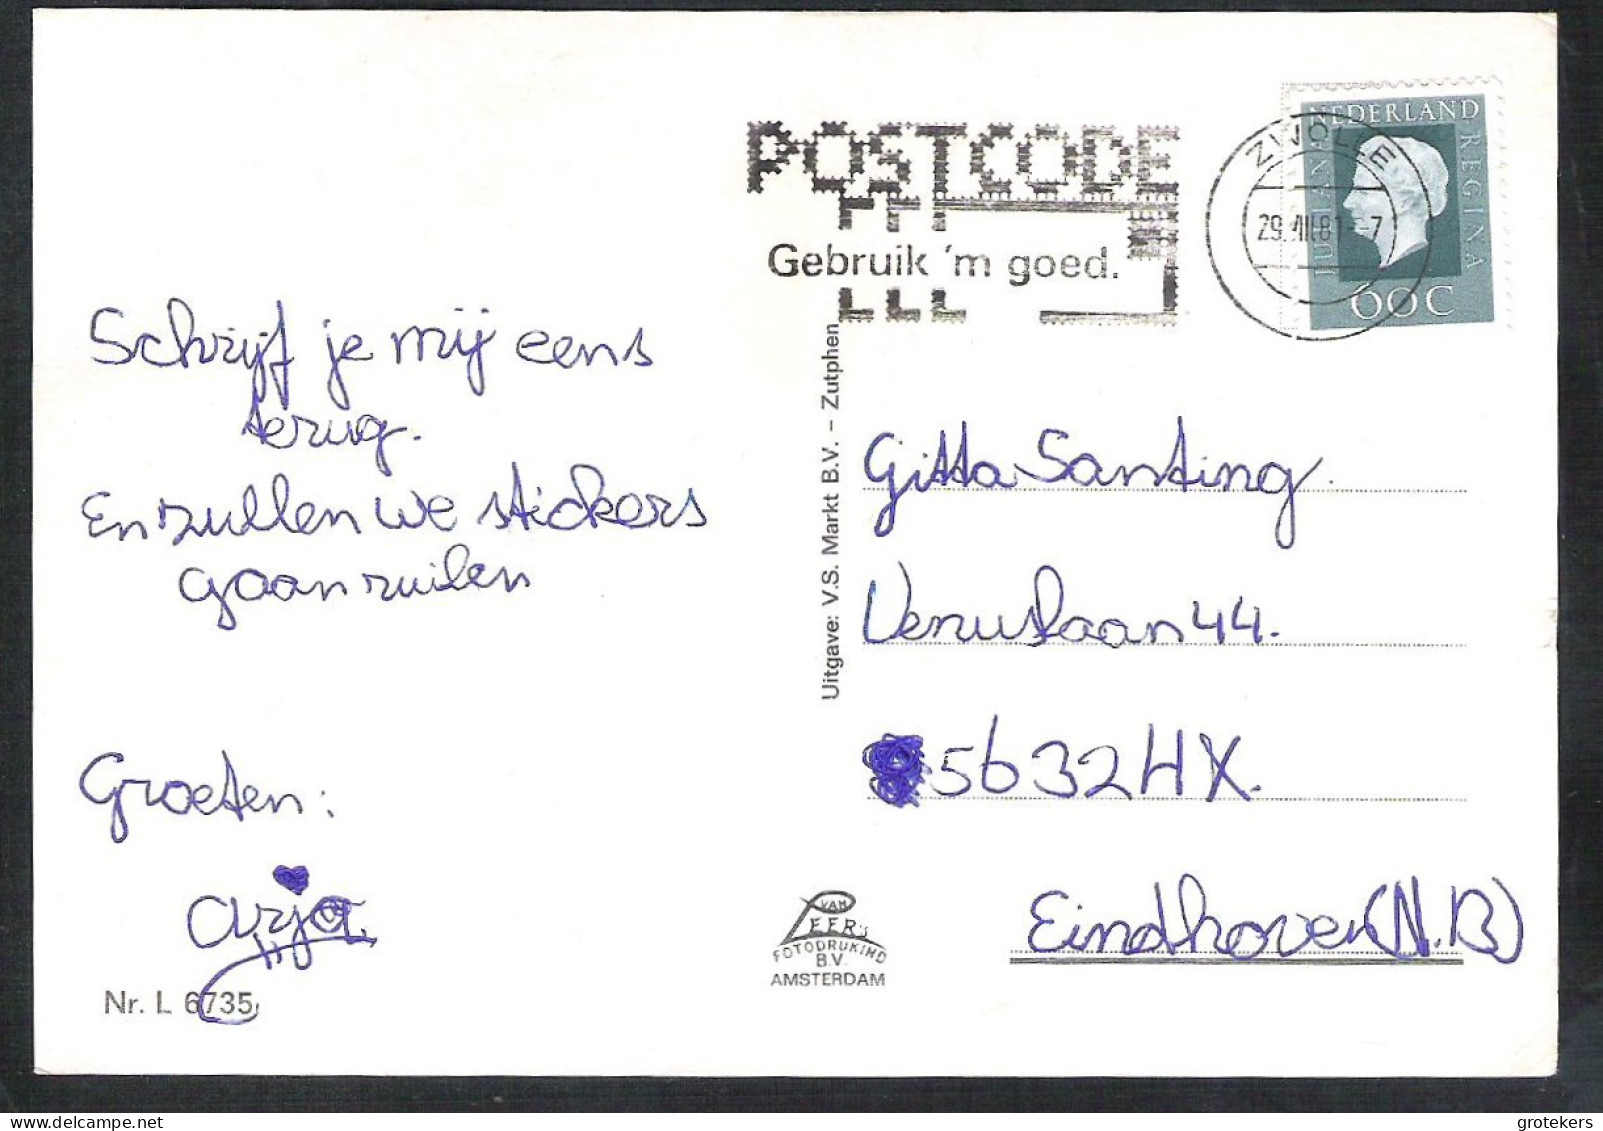 POSTCODE
Gebruik 'm goed.
ZWOLLE
NEDERLAND
JULIANA REGINA
60C
Schrijf je mij eens
terug.
En zullen we stickers
gaan ruilen
Groeten:
arja
Nr. L 6735
Uitgave: V.S. Markt B.V. – Zutphen
Gitta Santing.
Venuslaan 44.
5632HX.
Eindhoven (N.B)
VAN
FOTODRUKIND
B.V.
AMSTERDAM
grotekers